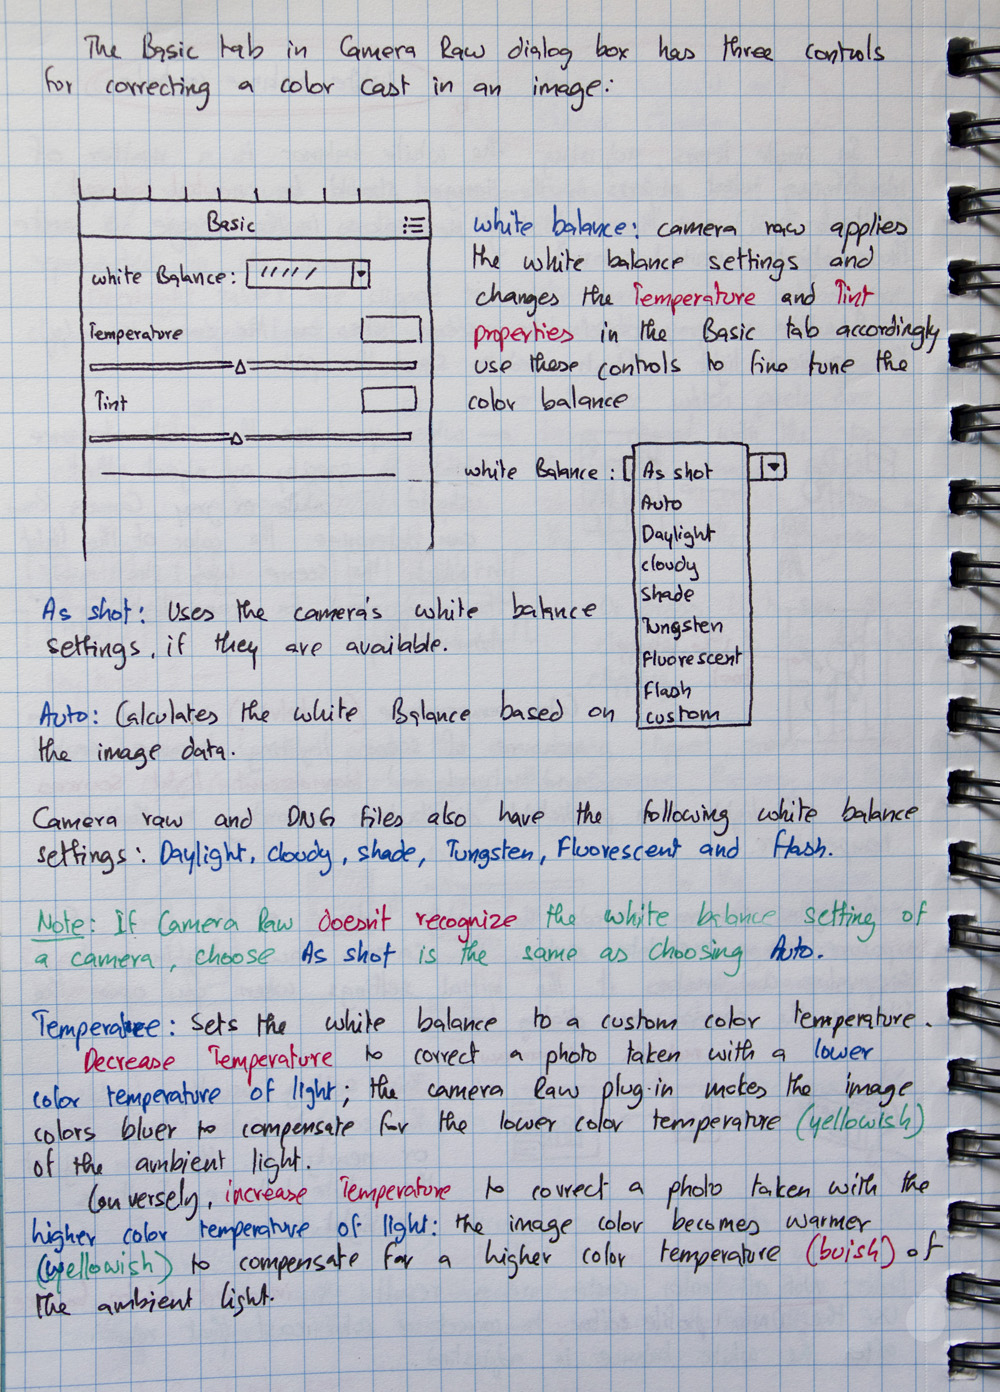 The Basic tab in Camera Raw dialog box has three controls
for correcting a color cast in an image:
Basic
white Balance:
Temperature
Tint
white balance: camera raw applies
the white balance settings and
changes the Temperature and Tint
properties in the Basic tab accordingly
use these controls to fine tune the
color balance
white Balance: As shot
Auto
Daylight
cloudy
shade
Tungsten
Fluorescent
Flash
custom
As shot: Uses the camera's white balance
settings, if they are available.
Auto: Calculates the white Balance based on
the image data.
Camera raw and DNG files also have the following white balance
settings: Daylight, cloudy, shade, Tungsten, Fluorescent and Flash.
Note: If Camera Raw doesn't recognize the white balance setting of
a camera, choose As shot is the same as choosing Auto.
Temperature: Sets the white balance to a custom color temperature.
Decrease Temperature to correct a photo taken with a lower
color temperature of light; the camera Raw plug-in makes the image
colors bluer to compensate for the lower color temperature (yellowish)
of the ambient light.
Conversely, increase Temperature to correct a photo taken with the
higher color temperature of light: the image color becomes warmer
(yellowish) to compensate for a higher color temperature (buish) of
the ambient light.